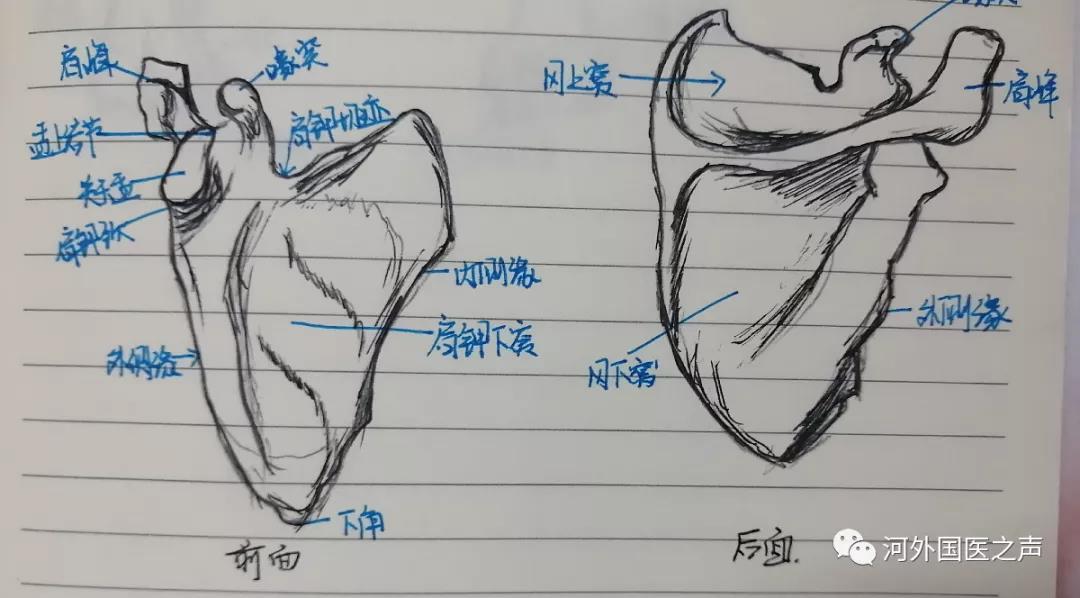 肩峰
喙突
盂上结节
肩胛切迹
关节盂
肩胛颈
内侧缘
肩胛下窝
外侧缘
下角
前面
冈上窝
肩峰
外侧缘
冈下窝
后面.
河外国医之声